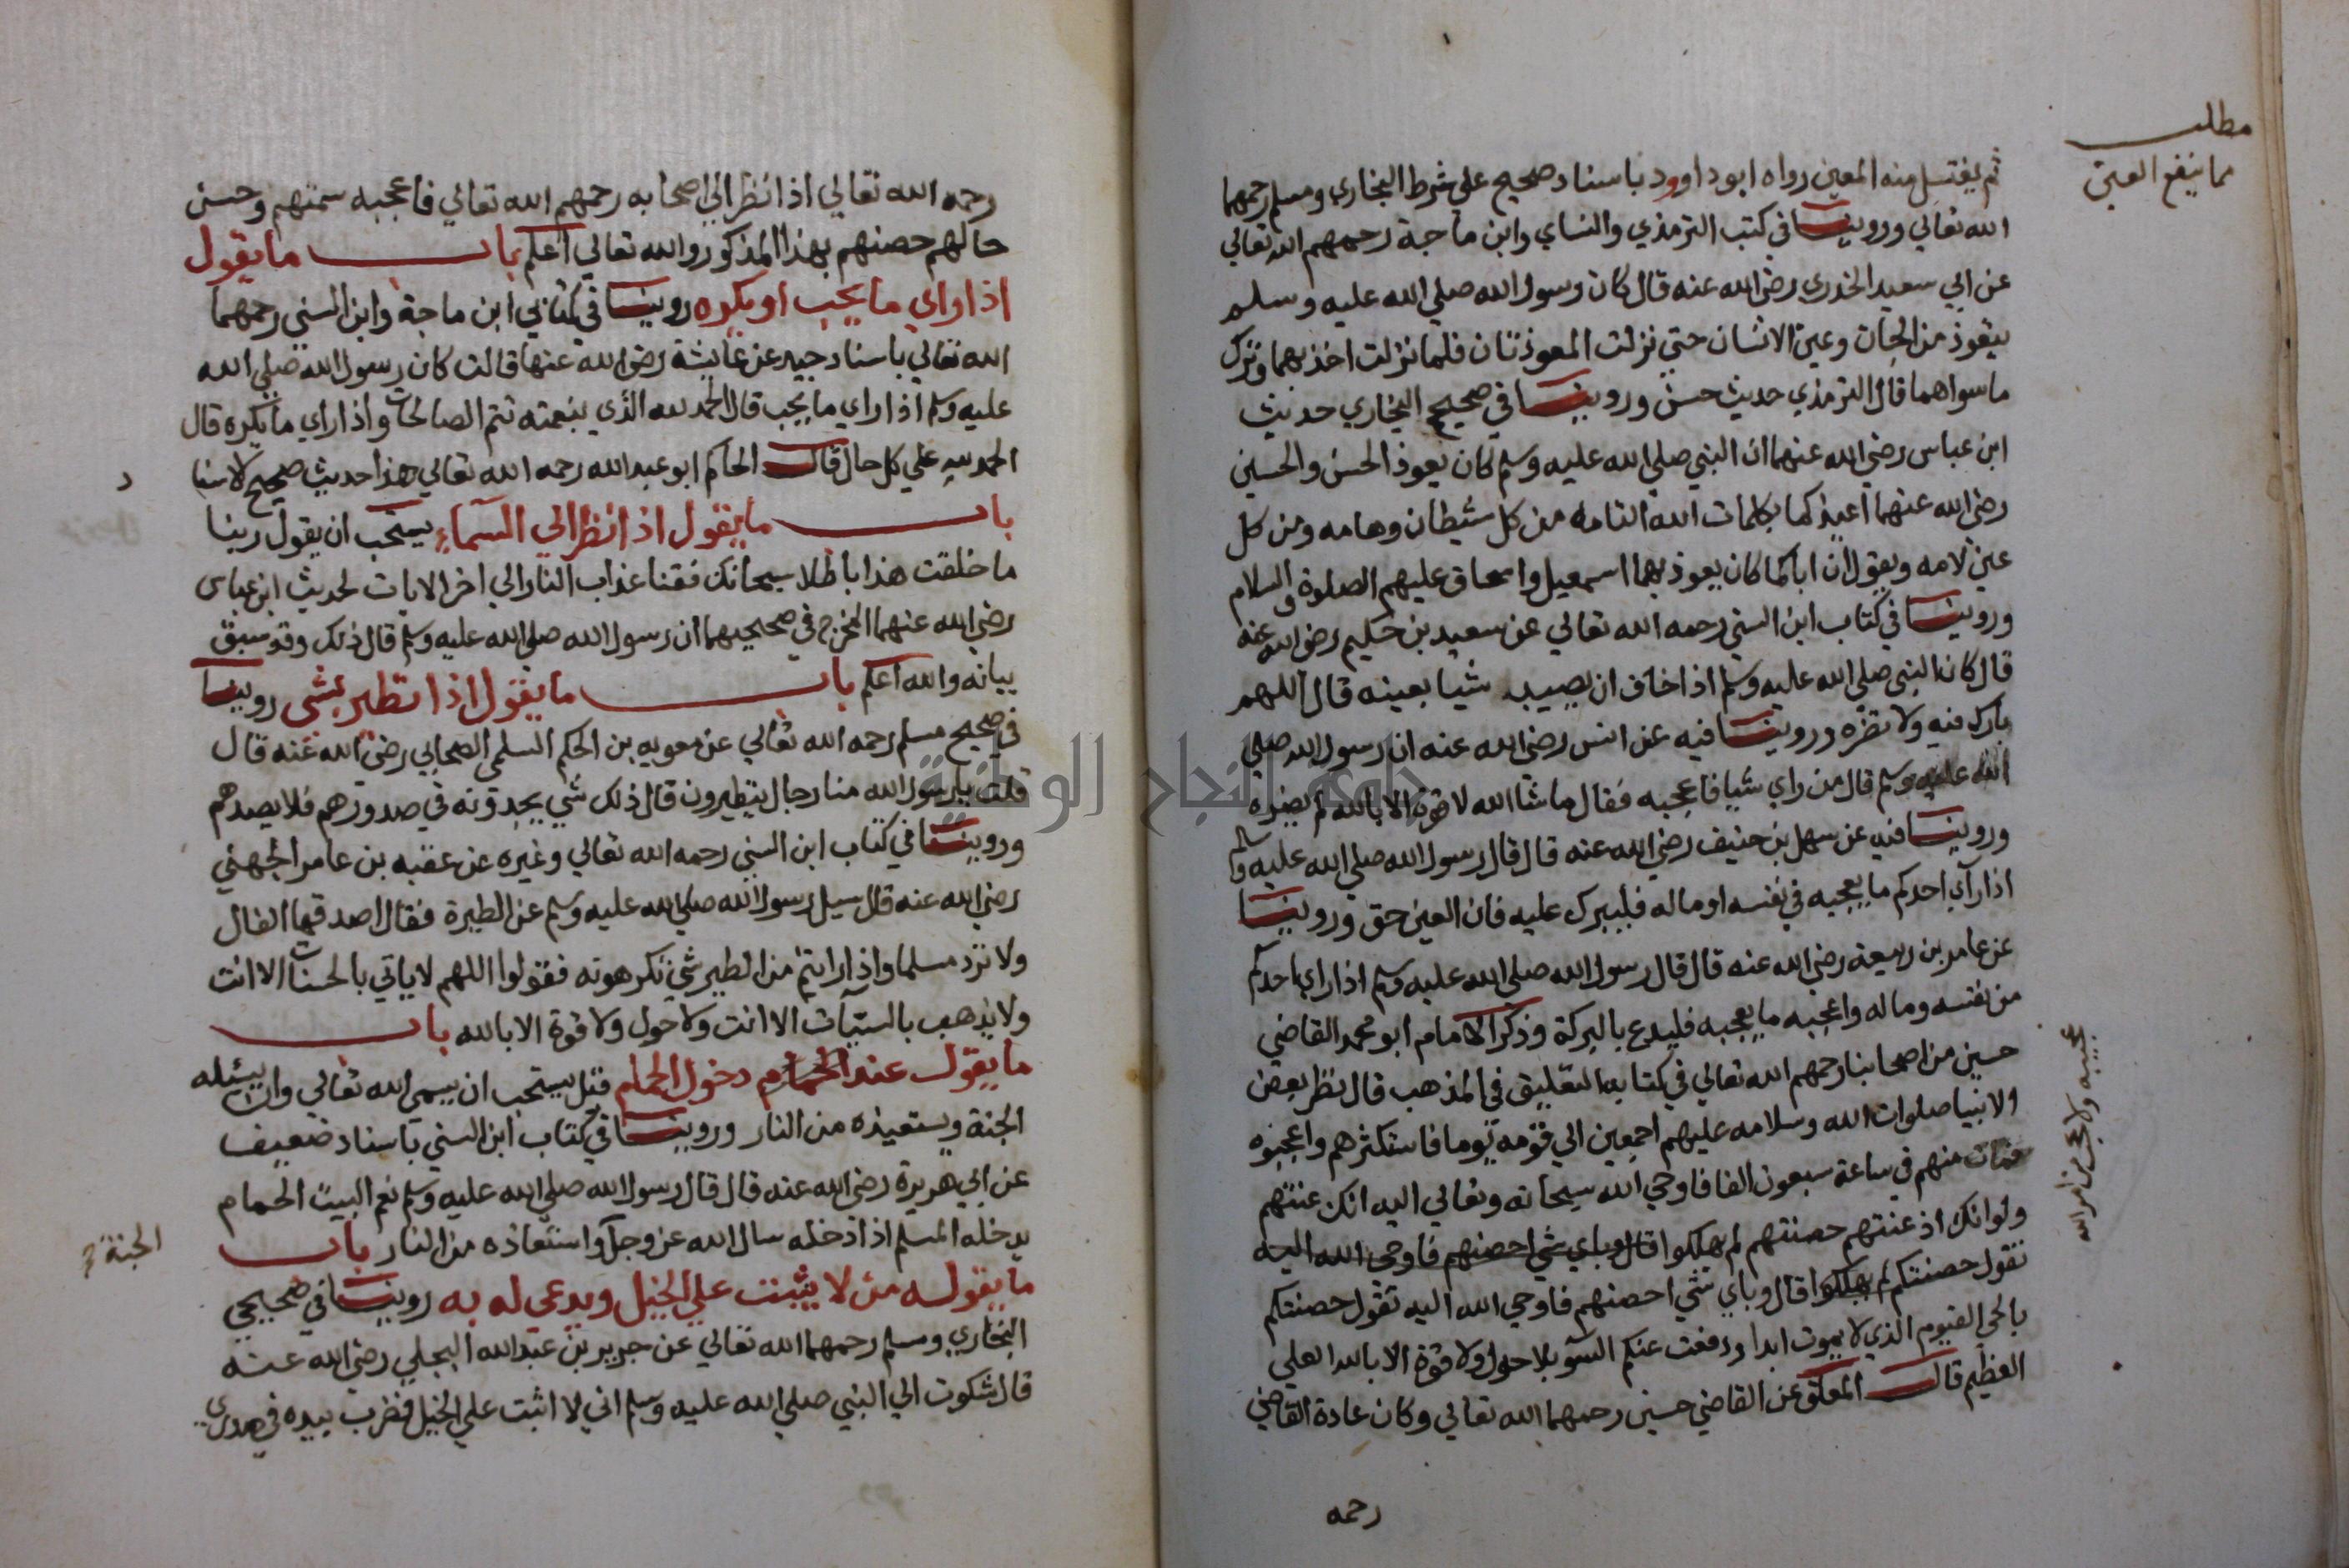 مطلب
مما ينفع العين
ثم يغتسل منه المعين رواه ابو داوود باسناد صحيح على شرط البخاري ومسلم رحمهما
الله تعالي وروينا في كتب الترمذي والنساي وابن ماجة رحمهم الله تعالي
عن ابي سعيد الخدري رضي الله عنه قال كان رسول الله صلي الله عليه وسلم
يتعوذ من الجان وعين الانسان حتي نزلت المعوذتان فلما نزلت اخذ بهما وترك
ما سواهما قال الترمذي حديث حسن وروينا في صحيح البخاري حديث
ابن عباس رضي الله عنهما ان النبي صلي الله عليه وسلم كان يعوذ الحسن والحسين
رضي الله عنهما اعيذكما بكلمات الله التامه من كل شيطان وهامه ومن كل
عين لامه ويقول ان اباكما كان يعوذ بهما اسمعيل واسحاق عليهم الصلوة والسلام
وروينا في كتاب ابن السني رحمه الله تعالي عن سعيد بن حكيم رضي الله عنه
قال كان النبي صلي الله عليه وسلم اذا خاف ان يصيب شيا بعينه قال اللهم
بارك فيه ولا تضره وروينا فيه عن انس رضي الله عنه ان رسول الله صلي
الله عليه وسلم قال من راي شيا فاعجبه فقال ما شا الله لا قوة الا بالله لم يضره
وروينا فيه عن سهل بن حنيف رضي الله عنه قال قال رسول الله صلي الله عليه وسلم
اذا رآي احدكم ما يعجبه في نفسه او ماله فليبرك عليه فان العين حق وروينا
عن عامر بن ربيعة رضي الله عنه قال قال رسول الله صلي الله عليه وسلم اذا راي احدكم
من نفسه وماله واعجبه ما يعجبه فليدع بالبركة وذكر الامام ابو محمد القاضي
حسين من اصحابنا رحمهم الله تعالي في كتابه التعليق في المذهب قال نظر بعض
الانبيا صلوات الله وسلامه عليهم اجمعين الي قومه يوما فاستكثرهم واعجبوه
فمات منهم في ساعة سبعون الفا فاوحي الله سبحانه وتعالي اليه انك عنتهم
ولو انك اذ عنتهم حصنتهم لم يهلكوا قال وباي شي احصنهم فاوحي الله اليه
تقول حصنتكم لم يهلكوا قال وباي شي احصنهم فاوحي الله اليه تقول حصنتكم
بالحي القيوم الذي لا يموت ابدا ودفعت عنكم السوء بلا حول ولا قوة الا بالله العلي
العظيم قال المعلق عن القاضي حسين رحمهما الله تعالي وكان عادة القاضي
رحمه
رحمه الله تعالي اذا نظر الي اصحابه رحمهم الله تعالي فاعجبه سمتهم وحسن
حالهم حصنهم بهذا المذكور والله تعالي اعلم باب ما يقول
اذا راي ما يحب او يكره روينا في كتابي ابن ماجة وابن السني رحمهما
الله تعالي باسناد جيد عن عايشة رضي الله عنها قالت كان رسول الله صلي الله
عليه وسلم اذا راي ما يحب قال الحمد لله الذي بنعمته تتم الصالحات واذا راي ما يكره قال
الحمد لله علي كل حال قال الحاكم ابو عبد الله رحمه الله تعالي هذا حديث صحيح الاسنا
د
باب ما يقول اذا نظر الي السماء يستحب ان يقول ربنا
ما خلقت هذا باطلا سبحانك فقنا عذاب النار الي اخر الايات لحديث ابن عباس
رضي الله عنهما المخرج في صحيحيهما ان رسول الله صلي الله عليه وسلم قال ذلك وقد سبق
بيانه والله اعلم باب ما يقول اذا تطير بشي روينا
في صحيح مسلم رحمه الله تعالي عن معويه بن الحكم السلمي الصحابي رضي الله عنه قال
قلت يا رسول الله منا رجال يتطيرون قال ذلك شي يجدونه في صدورهم فلا يصدهم
وروينا في كتاب ابن السني رحمه الله تعالي وغيره عن عقبه بن عامر الجهني
رضي الله عنه قال سيل رسول الله صلي الله عليه وسلم عن الطيرة فقال اصدقها الفال
ولا ترد مسلما واذا رايتم من الطير شي تكرهونه فقولوا اللهم لا ياتي بالحسنات الا انت
ولا يذهب بالسيآت الا انت ولا حول ولا قوة الا بالله باب
ما يقول عند الحمام دخول الحمام قيل يستحب ان يسمي الله تعالي وان يسئله
الجنة ويستعيذه من النار وروينا في كتاب ابن السني باسناد ضعيف
عن ابي هريرة رضي الله عنه قال قال رسول الله صلي الله عليه وسلم نعم البيت الحمام
يدخله المسلم اذا دخله سال الله عز وجل واستعاذه من النار باب
الجنة صح
ما يقوله من لا يثبت علي الخيل ويدعي له به روينا في صحيحي
البخاري ومسلم رحمهما الله تعالي عن جرير بن عبد الله البجلي رضي الله عنه
قال شكوت الي النبي صلي الله عليه وسلم اني لا اثبت علي الخيل فضرب بيده في صدري
جامعة النجاح الوطنية